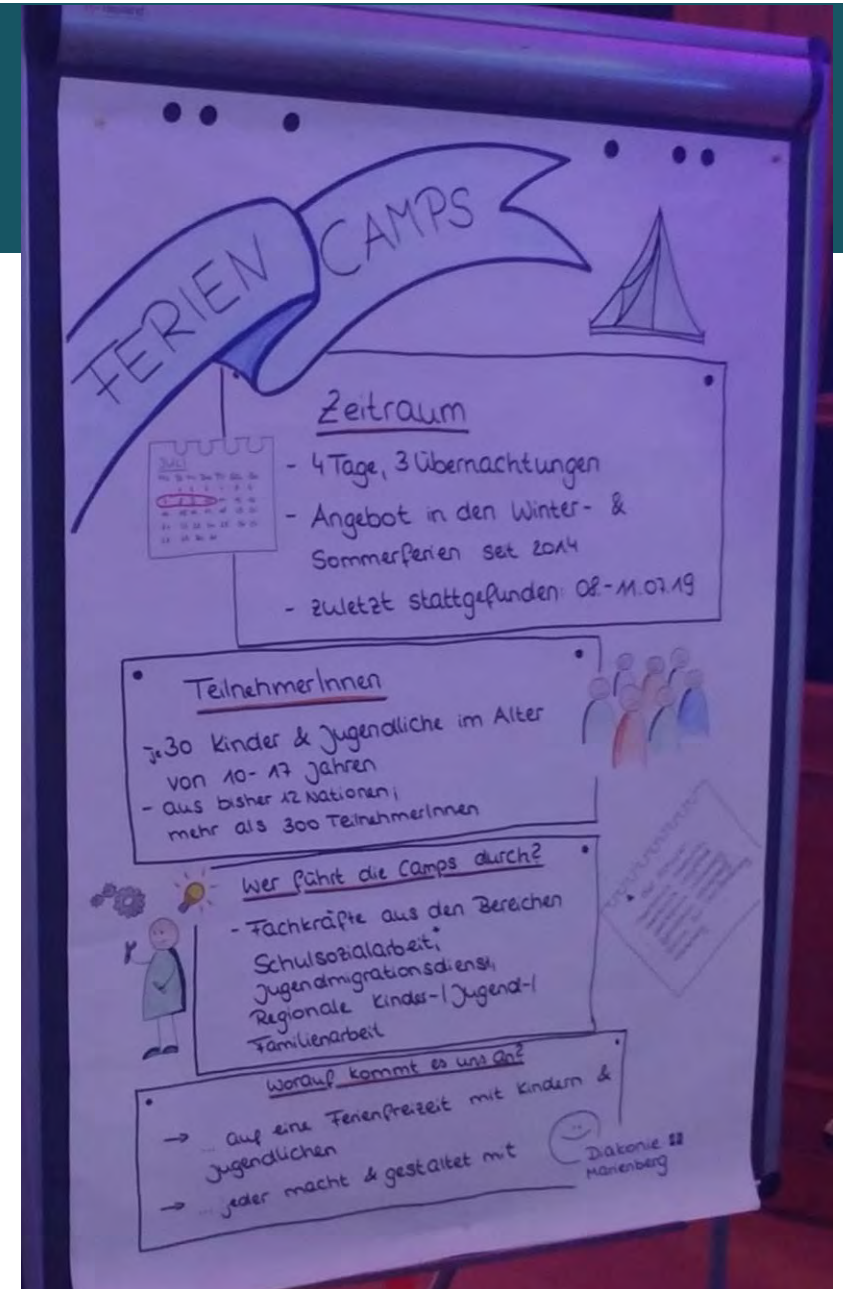 FERIEN CAMPS
Zeitraum
- 4 Tage, 3 Übernachtungen
- Angebot in den Winter- &
Sommerferien seit 2014
- zuletzt stattgefunden: 08.-11.07.19
JULI
TeilnehmerInnen
- je 30 Kinder & Jugendliche im Alter
von 10-17 Jahren
- aus bisher 12 Nationen;
mehr als 300 TeilnehmerInnen
Wer führt die Camps durch?
- Fachkräfte aus den Bereichen
Schulsozialarbeit,
Jugendmigrationsdienst,
Regionale Kinder-/Jugend-/
Familienarbeit
Worauf kommt es uns an?
→ ... auf eine Ferienfreizeit mit Kindern &
Jugendlichen
→ ... jeder macht & gestaltet mit
Diakonie
Marienberg